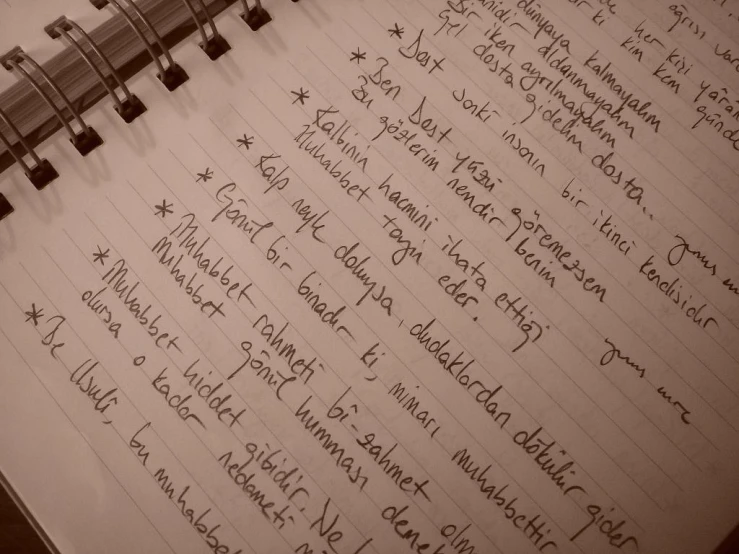 ağrısı var
her kişi yârân
ki kim kem günde
dünyaya kalmayalım
fanidir aldanmayalım
Bir iken ayrılmayalım
Gel dosta gidelim dosta..
* Dost sanki insanın bir ikinci kendisidir
yunus
* Ben Dost yüzü göremezsem
Bu gözlerim nendir benim
yunus emre
* Kalbinin hacmini ihata ettiği
Muhabbet tayin eder.
* Kalp neyle doluysa, dudaklardan dökülür gider
* Gönül bir binadır ki, mimarı muhabbettir
* Muhabbet rahmeti bî-zahmet olm
Muhabbet gönül humması demek
* Muhabbet hiddet gibidir. Ne
olursa o kadar nedameti
* Be Usulî, bu muhabbe